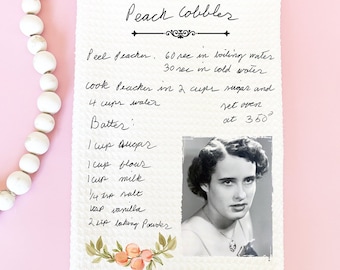 Peach Cobbler
Peel Peaches: 60 sec in boiling water
30 sec in cold water
Cook Peaches in 2 cups sugar and
4 cups water
set oven
at 350°
Batter:
1 cup sugar
1 cup flour
1 cup milk
1/4 tsp salt
vanilla
2 baking Powder